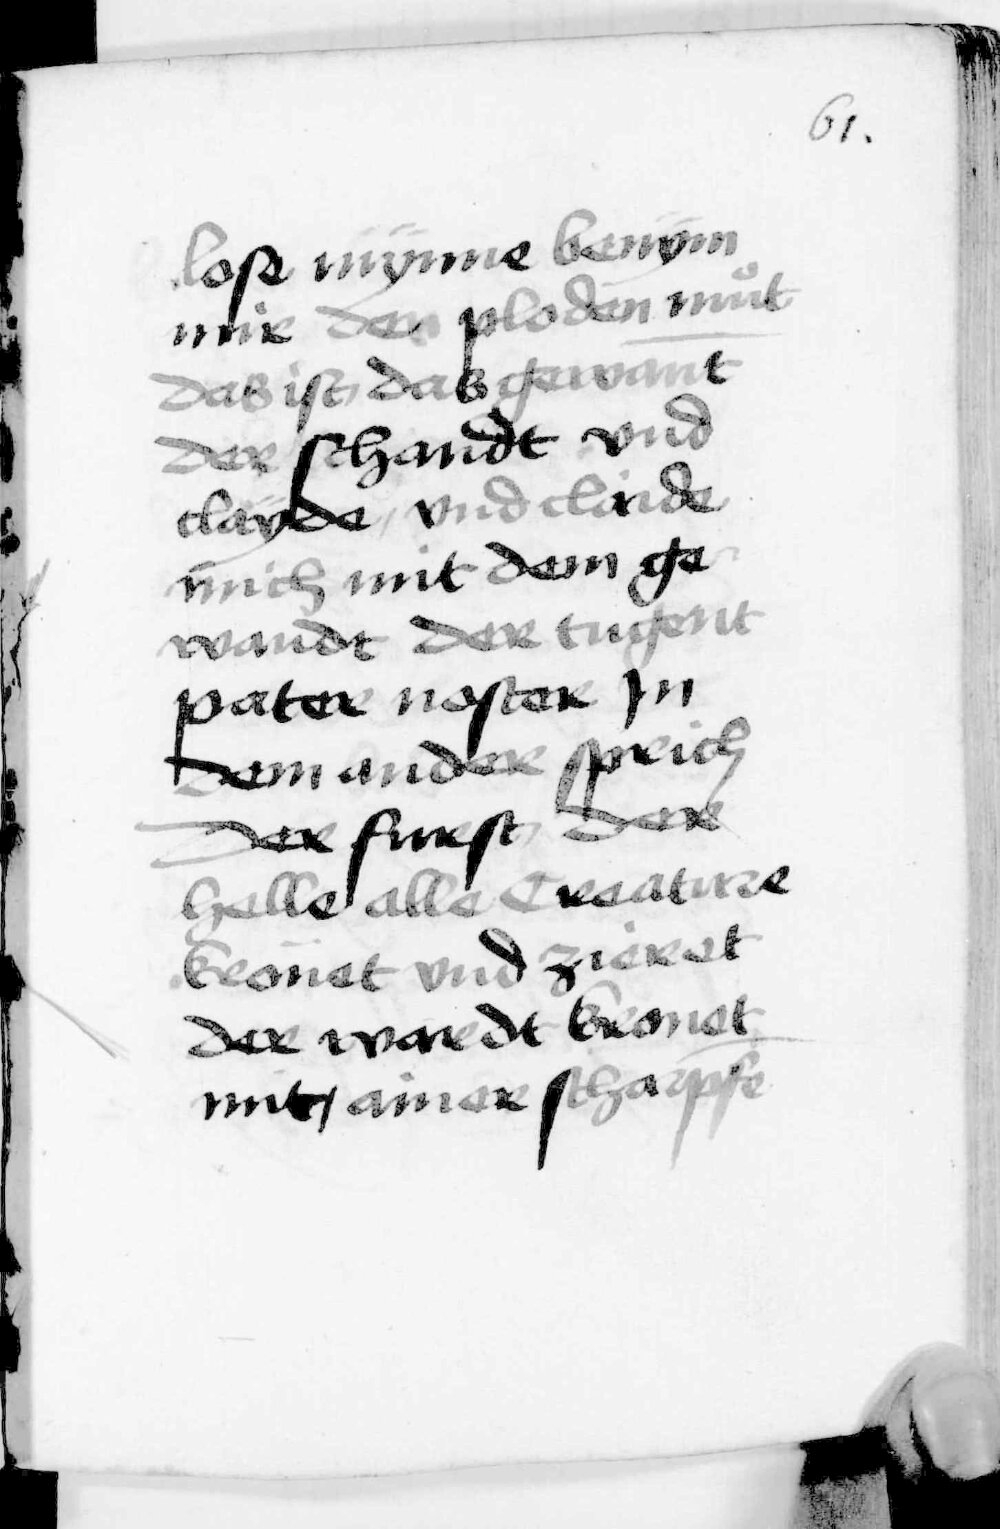 61.
lose mynne benÿm
mir den ploden muͦt
das ist das gewant
der schandt vnd
clayde vnd claide
mich mit dem ge
wandt der tugent
pater noster Jn
dem ander sprich
der furst der
helle alle Creature
kronet vnd zieret
der wardt kronet
mit ainer scharpfe